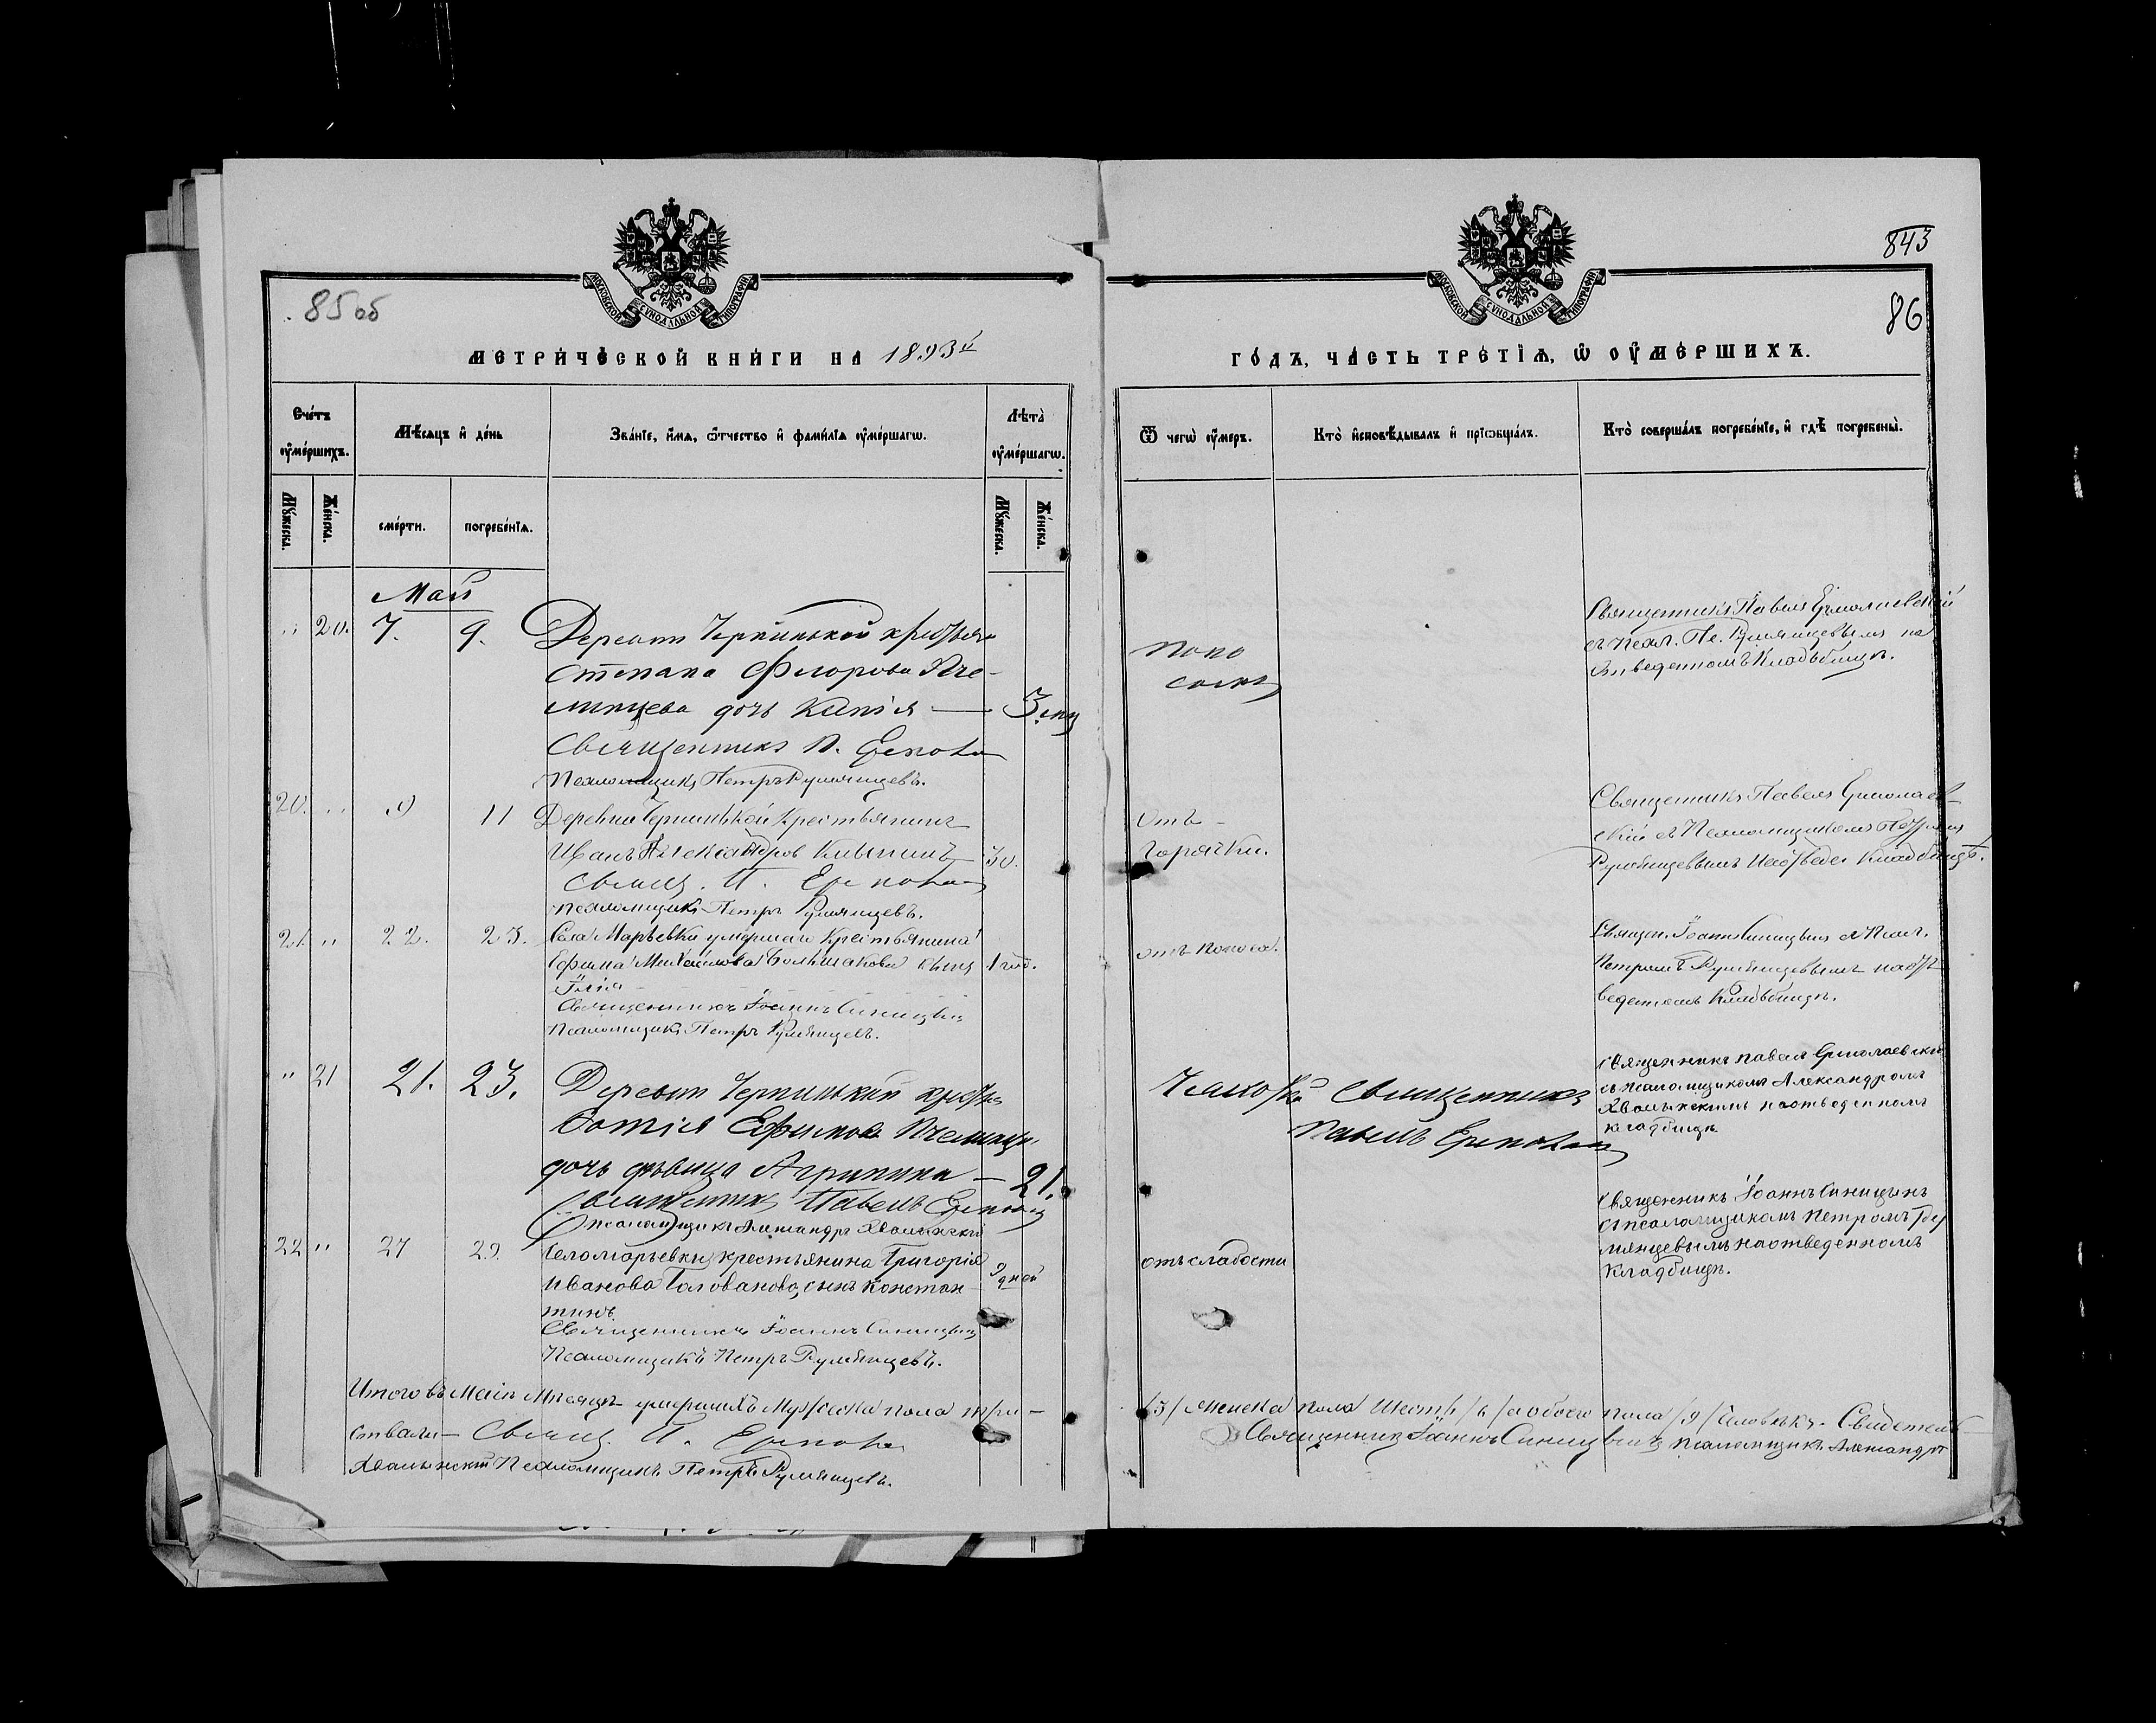 85 об
МОСКОВСКОЙ СУНОДАЛЬНОЙ ТИПОГРАФІИ
МЕТРИЧЕСКОЙ КНИГИ НА 1893й
Счетъ оумершихъ.
Мѣсяцъ и день
Званіе, имя, отчество и фамилія оумершагω.
Лѣта оумершагω.
Мужеска.
Женска.
смерти.
погребенія.
Мужеска.
Женска.
Май
" 20. 7. 9. Деревни
Степана Флорова Пче-
линцева дочь — 3
Священникъ П.
Псаломщикъ Петръ Румянцевъ.
20. " 9 11 Деревни Крестьянинъ
Иванъ Александровъ 30.
Свящ. П.
Псаломщикъ Петръ Румянцевъ.
21. " 22. 23. Села Марьевки умершаго Крестьянина
Михайлова Большакова сынъ 1 год.
Священникъ Іоаннъ Синицынъ
Псаломщикъ Петръ Румянцевъ.
" 21 21. 23. Деревни
Ефимова
дочь дѣвица Агрипина — 21.
Священникъ Павелъ
Псаломщикъ Александръ Хвалынскій
22 " 27 29. Села Марьевки, крестьянина Григорія
Иванова Голованова, сынъ Констан- 9 дней
тинъ
Священникъ Іоаннъ Синицынъ
Псаломщикъ Петръ Румянцевъ.
Итого въ Маѣ Мѣсяцѣ умершихъ Мужеска пола три —
ствали — Свящ. П.
Хвалынскій Псаломщикъ Петръ Румянцевъ.
843
86
МОСКОВСКОЙ СУНОДАЛЬНОЙ ТИПОГРАФІИ
ГОДЪ, ЧАСТЬ ТРЕТІЯ, Ѡ ОУМЕРШИХЪ.
Ѿ чегω оумеръ.
Кто исповѣдывалъ и пріωбщалъ.
Кто совершалъ погребеніе, и гдѣ погребены.
Священникъ Павелъ Ермолаевскій
съ Псал. Пе. Румянцевымъ на
отведенномъ Кладбищѣ.
Отъ
Горячки.
Священникъ Павелъ Ермолаев-
скій съ Псаломщикомъ Петромъ
Румянцевымъ На отведен Кладбищѣ.
отъ поноса.
Священ. Іоаннъ Синицынъ съ Псал.
Петромъ Румянцевымъ на от-
веденномъ Кладбищѣ.
Чахотка Священникъ
Павелъ
Священникъ Павелъ Ермолаевскій
съ псаломщикомъ Александромъ
Хвалынскимъ на отведенномъ
кладбищѣ
отъ слабости
Священникъ Іоаннъ Синицынъ
съ псаломщикомъ Петромъ Ру
мянцевымъ на отведенномъ
кладбищѣ.
/3/ Женска пола Шесть /6/ а обоего пола /9/ Человѣкъ. Свидетель-
Священникъ Іоаннъ Синицынъ псаломщикъ Александръ